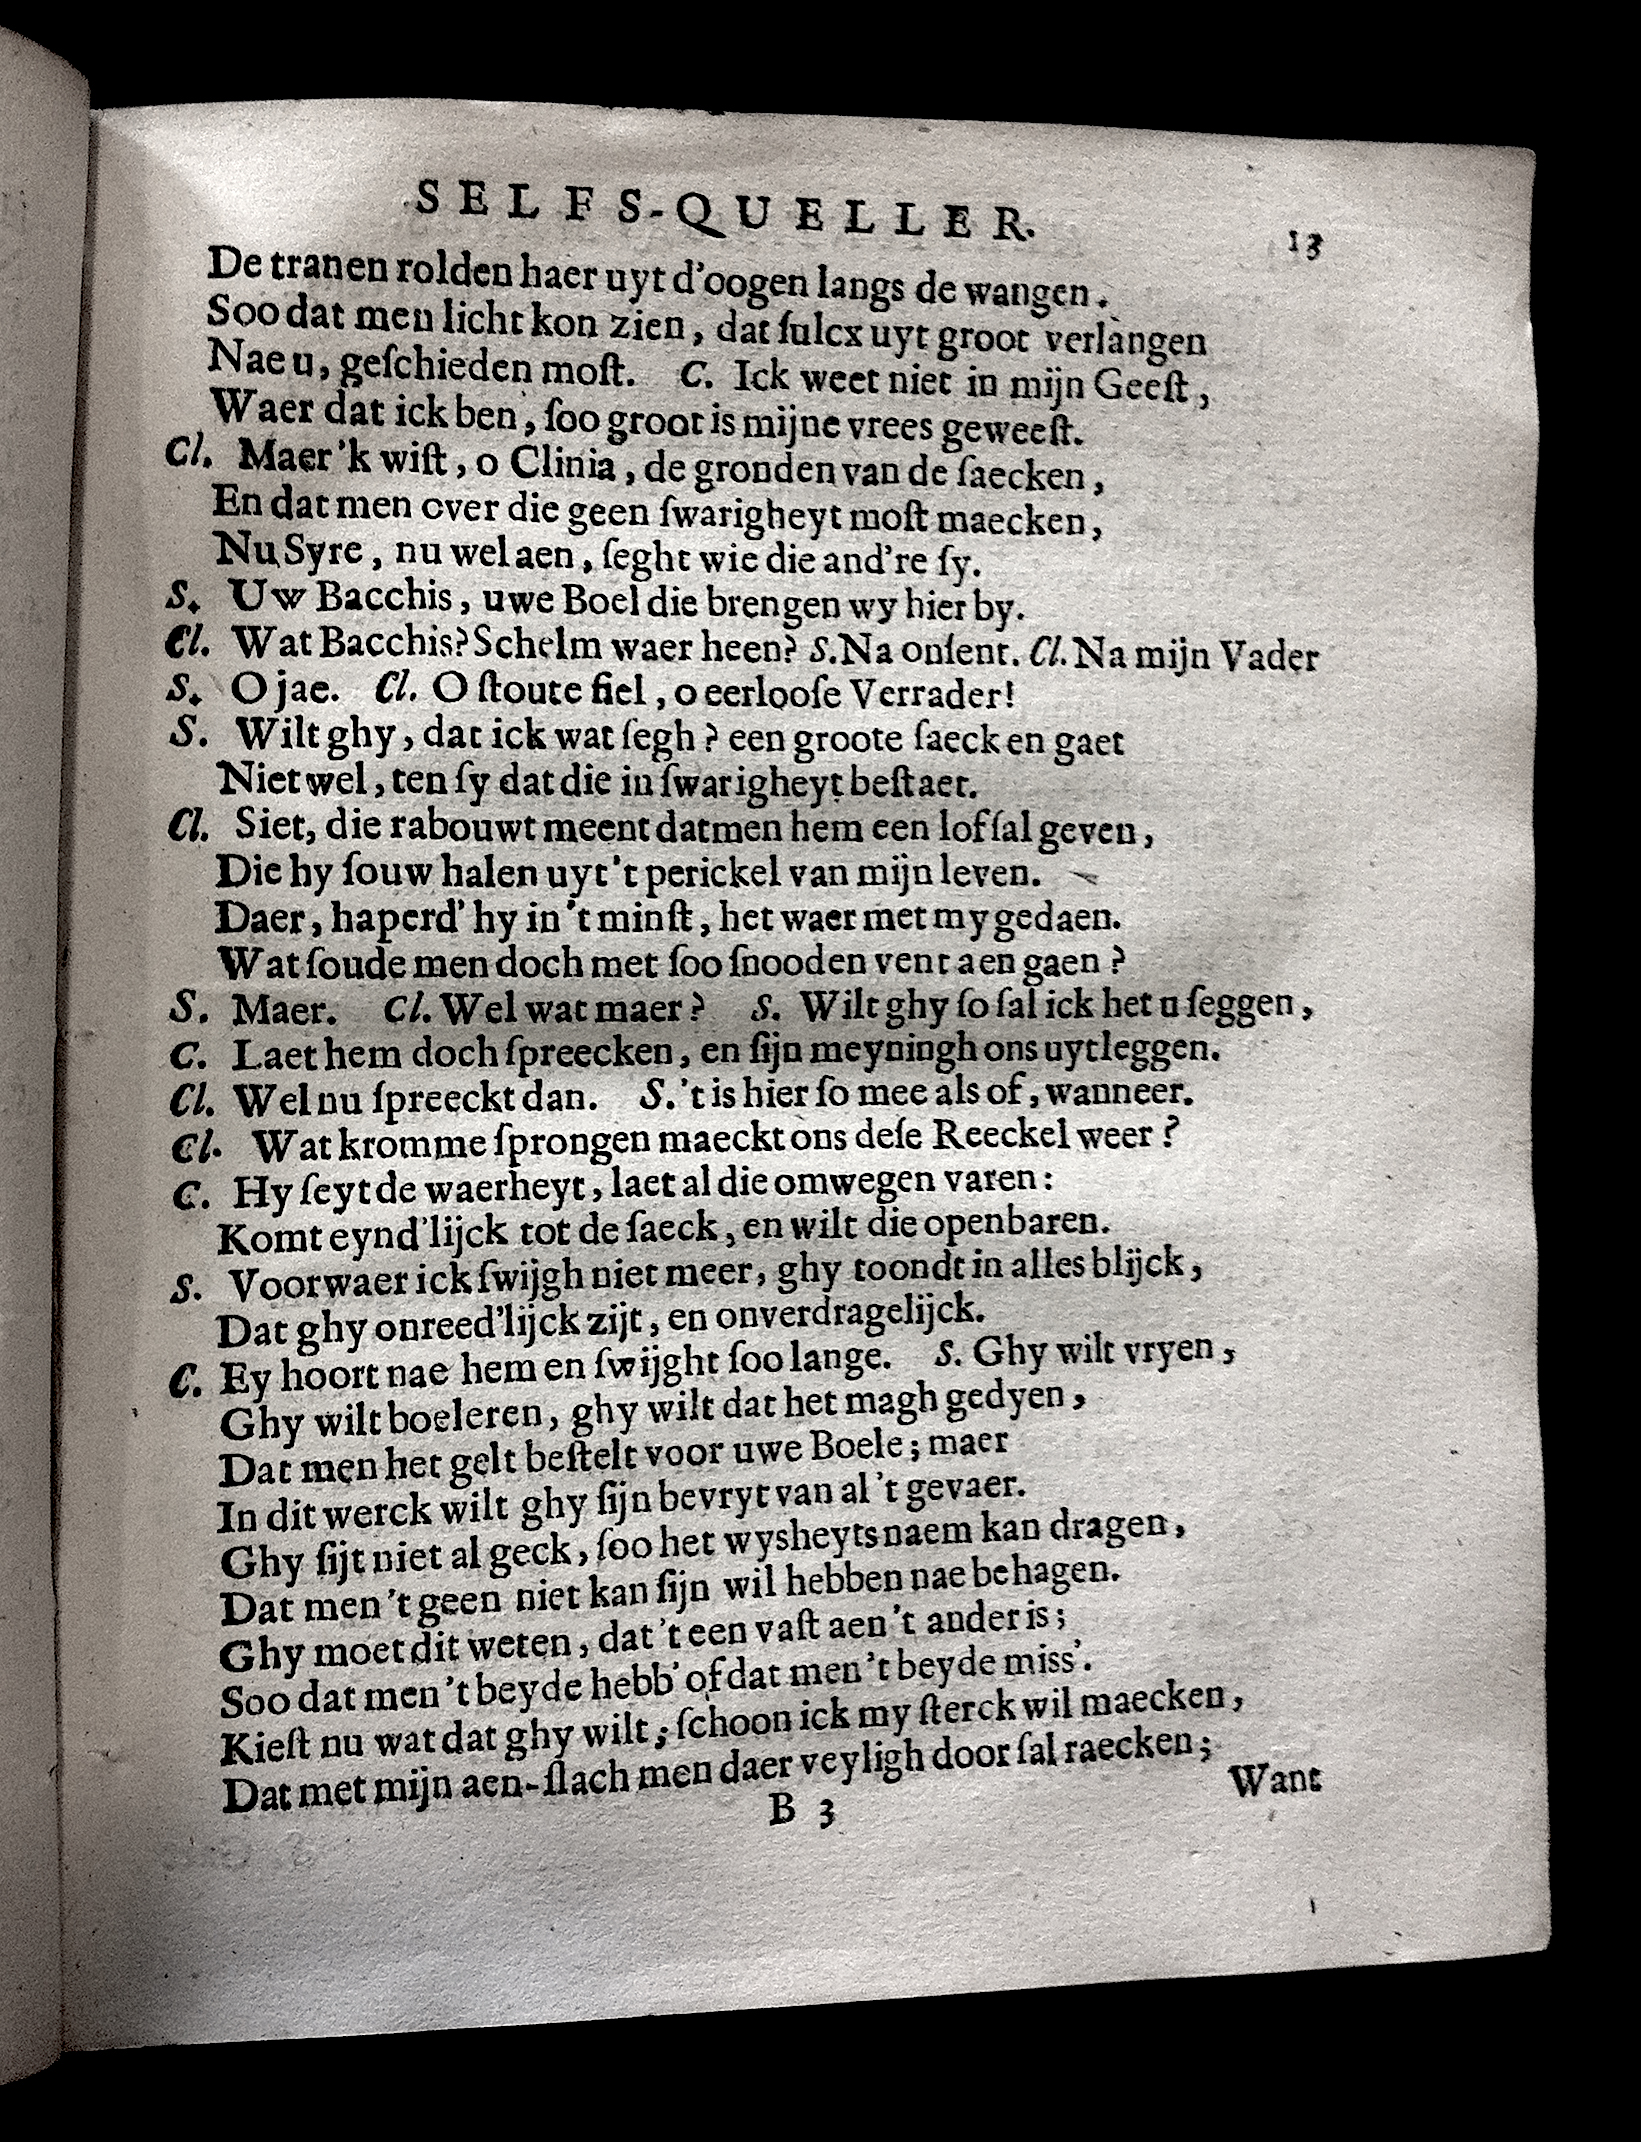 SELFS-QUELLER. 13
De tranen rolden haer uyt d'oogen langs de wangen.
Soo dat men licht kon zien, dat ſulcx uyt groot verlangen
Nae u, geſchieden moſt. C. Ick weet niet in mijn Geeſt,
Waer dat ick ben, ſoo groot is mijne vrees geweeſt.
Cl. Maer 'k wiſt, o Clinia, de gronden van de ſaecken,
En dat men over die geen ſwarigheyt moſt maecken,
Nu Syre, nu wel aen, ſeght wie die and're ſy.
S. Uw Bacchis, uwe Boel die brengen wy hier by.
Cl. Wat Bacchis? Schelm waer heen? S. Na onſent. Cl. Na mijn Vader
S. O jae. Cl. O ſtoute fiel, o eerlooſe Verrader!
S. Wilt ghy, dat ick wat ſegh? een groote ſaeck en gaet
Niet wel, ten ſy dat die in ſwarigheyt beſtaet.
Cl. Siet, die rabouwt meent datmen hem een lof ſal geven,
Die hy ſouw halen uyt 't perickel van mijn leven.
Daer, haperd' hy in 't minſt, het waer met my gedaen.
Wat ſoude men doch met ſoo ſnooden vent aen gaen?
S. Maer. Cl. Wel wat maer? S. Wilt ghy ſo ſal ick het u ſeggen,
C. Laet hem doch ſpreecken, en ſijn meyningh ons uytleggen.
Cl. Wel nu ſpreeckt dan. S. 't is hier ſo mee als of, wanneer.
Cl. Wat kromme ſprongen maeckt ons deſe Reeckel weer?
C. Hy ſeyt de waerheyt, laet al die omwegen varen:
Komt eynd'lijck tot de ſaeck, en wilt die openbaren.
S. Voorwaer ick ſwijgh niet meer, ghy toondt in alles blijck,
Dat ghy onreed'lijck zijt, en onverdragelijck.
C. Ey hoort nae hem en ſwijght ſoo lange. S. Ghy wilt vryen,
Ghy wilt boeleren, ghy wilt dat het magh gedyen,
Dat men het gelt beſtelt voor uwe Boele; maer
In dit werck wilt ghy ſijn bevryt van al 't gevaer.
Ghy ſijt niet al geck, ſoo het wysheyts naem kan dragen,
Dat men 't geen niet kan ſijn wil hebben nae behagen.
Ghy moet dit weten, dat 't een vaſt aen 't ander is;
Soo dat men 't beyde hebb' of dat men 't beyde miss'.
Kieſt nu wat dat ghy wilt; ſchoon ick my ſterck wil maecken,
Dat met mijn aen-ſlach men daer veyligh door ſal raecken;
B 3 Want